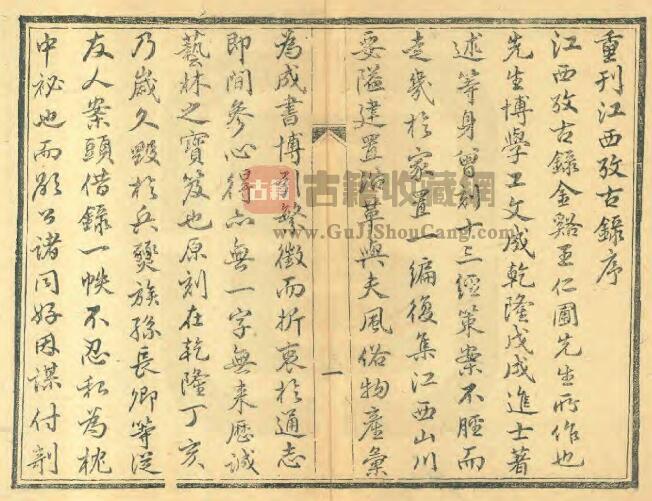 重刊江西攷古錄序
江西攷古錄金谿王仁圃先生所作也
先生博學工文成乾隆戊戌進士著
述等身曾刻十三經策案不脛而
走幾於家置一編復集江西山川
要隘建置沿革與夫風俗物產彙
一
為成書博引繁徵而折衷於通志
即間參心得亦無一字無來歷誠
藝林之寶笈也原刻在乾隆丁亥
乃歲久毀於兵燹族孫長卿等從
友人案頭借錄一帙不忍私為枕
中祕也而願公諸同好因謀付剞
古籍
古籍收藏網
www.GuJiShouCang.com